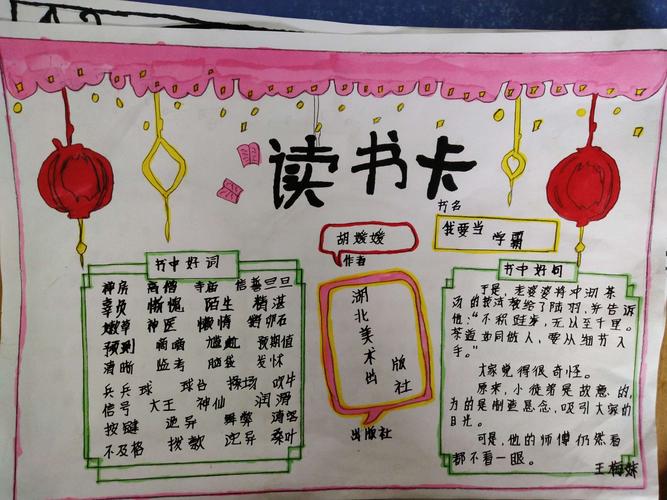 读书卡
书名
我要当学霸
胡媛媛
作者
湖北美术出版社
出版社
书中好词
禅房 高僧 寺庙 信誓旦旦
辜负 惭愧 陌生 精湛
嫩草 神医 懒惰 鹅卵石
预到 嘀嘀 尴尬 预期值
清晰 监考 脑袋 发怵
乒乓球 球台 操场 吹牛
信号 大王 神仙 润滑
按键 诡异 舞弊
不及格 拨款 诧异 桑叶
书中好句
于是,老婆婆将冲沏茶
汤的技法教给了陆羽,并告诉
他:“不积跬步,无以至千里。
茶道如同做人,要从细节入
手。”
大家觉得很奇怪。
原来,小徒弟是故意的,
为的是制造悬念,吸引大家的
目光。
可是,他的师傅仍然看
都不看一眼。
王梅妹